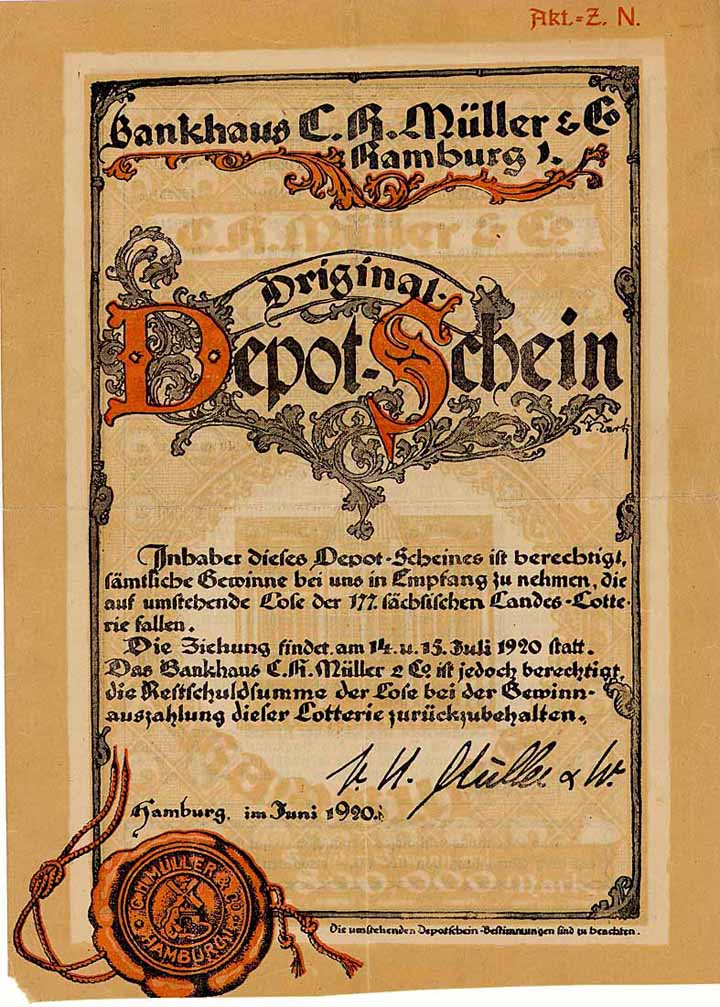 Akt.-Z. N.
Bankhaus C. H. Müller & Co
Hamburg 1.
C. H. Müller & Co
Original-
Depot-Schein
Inhaber dieses Depot-Scheines ist berechtigt,
sämtliche Gewinne bei uns in Empfang zu nehmen, die
auf umstehende Lose der 177. sächsischen Landes-Lotte-
rie fallen.
Die Ziehung findet am 14. u. 15. Juli 1920 statt.
Das Bankhaus C. H. Müller & Co. ist jedoch berechtigt,
die Restschuldsumme der Lose bei der Gewinn-
auszahlung dieser Lotterie zurückzubehalten.
C. H. Müller & Co.
Hamburg, im Juni 1920.
C. H. MÜLLER & Co.
HAMBURG
Die umstehenden Depotschein-Bestimmungen sind zu beachten.